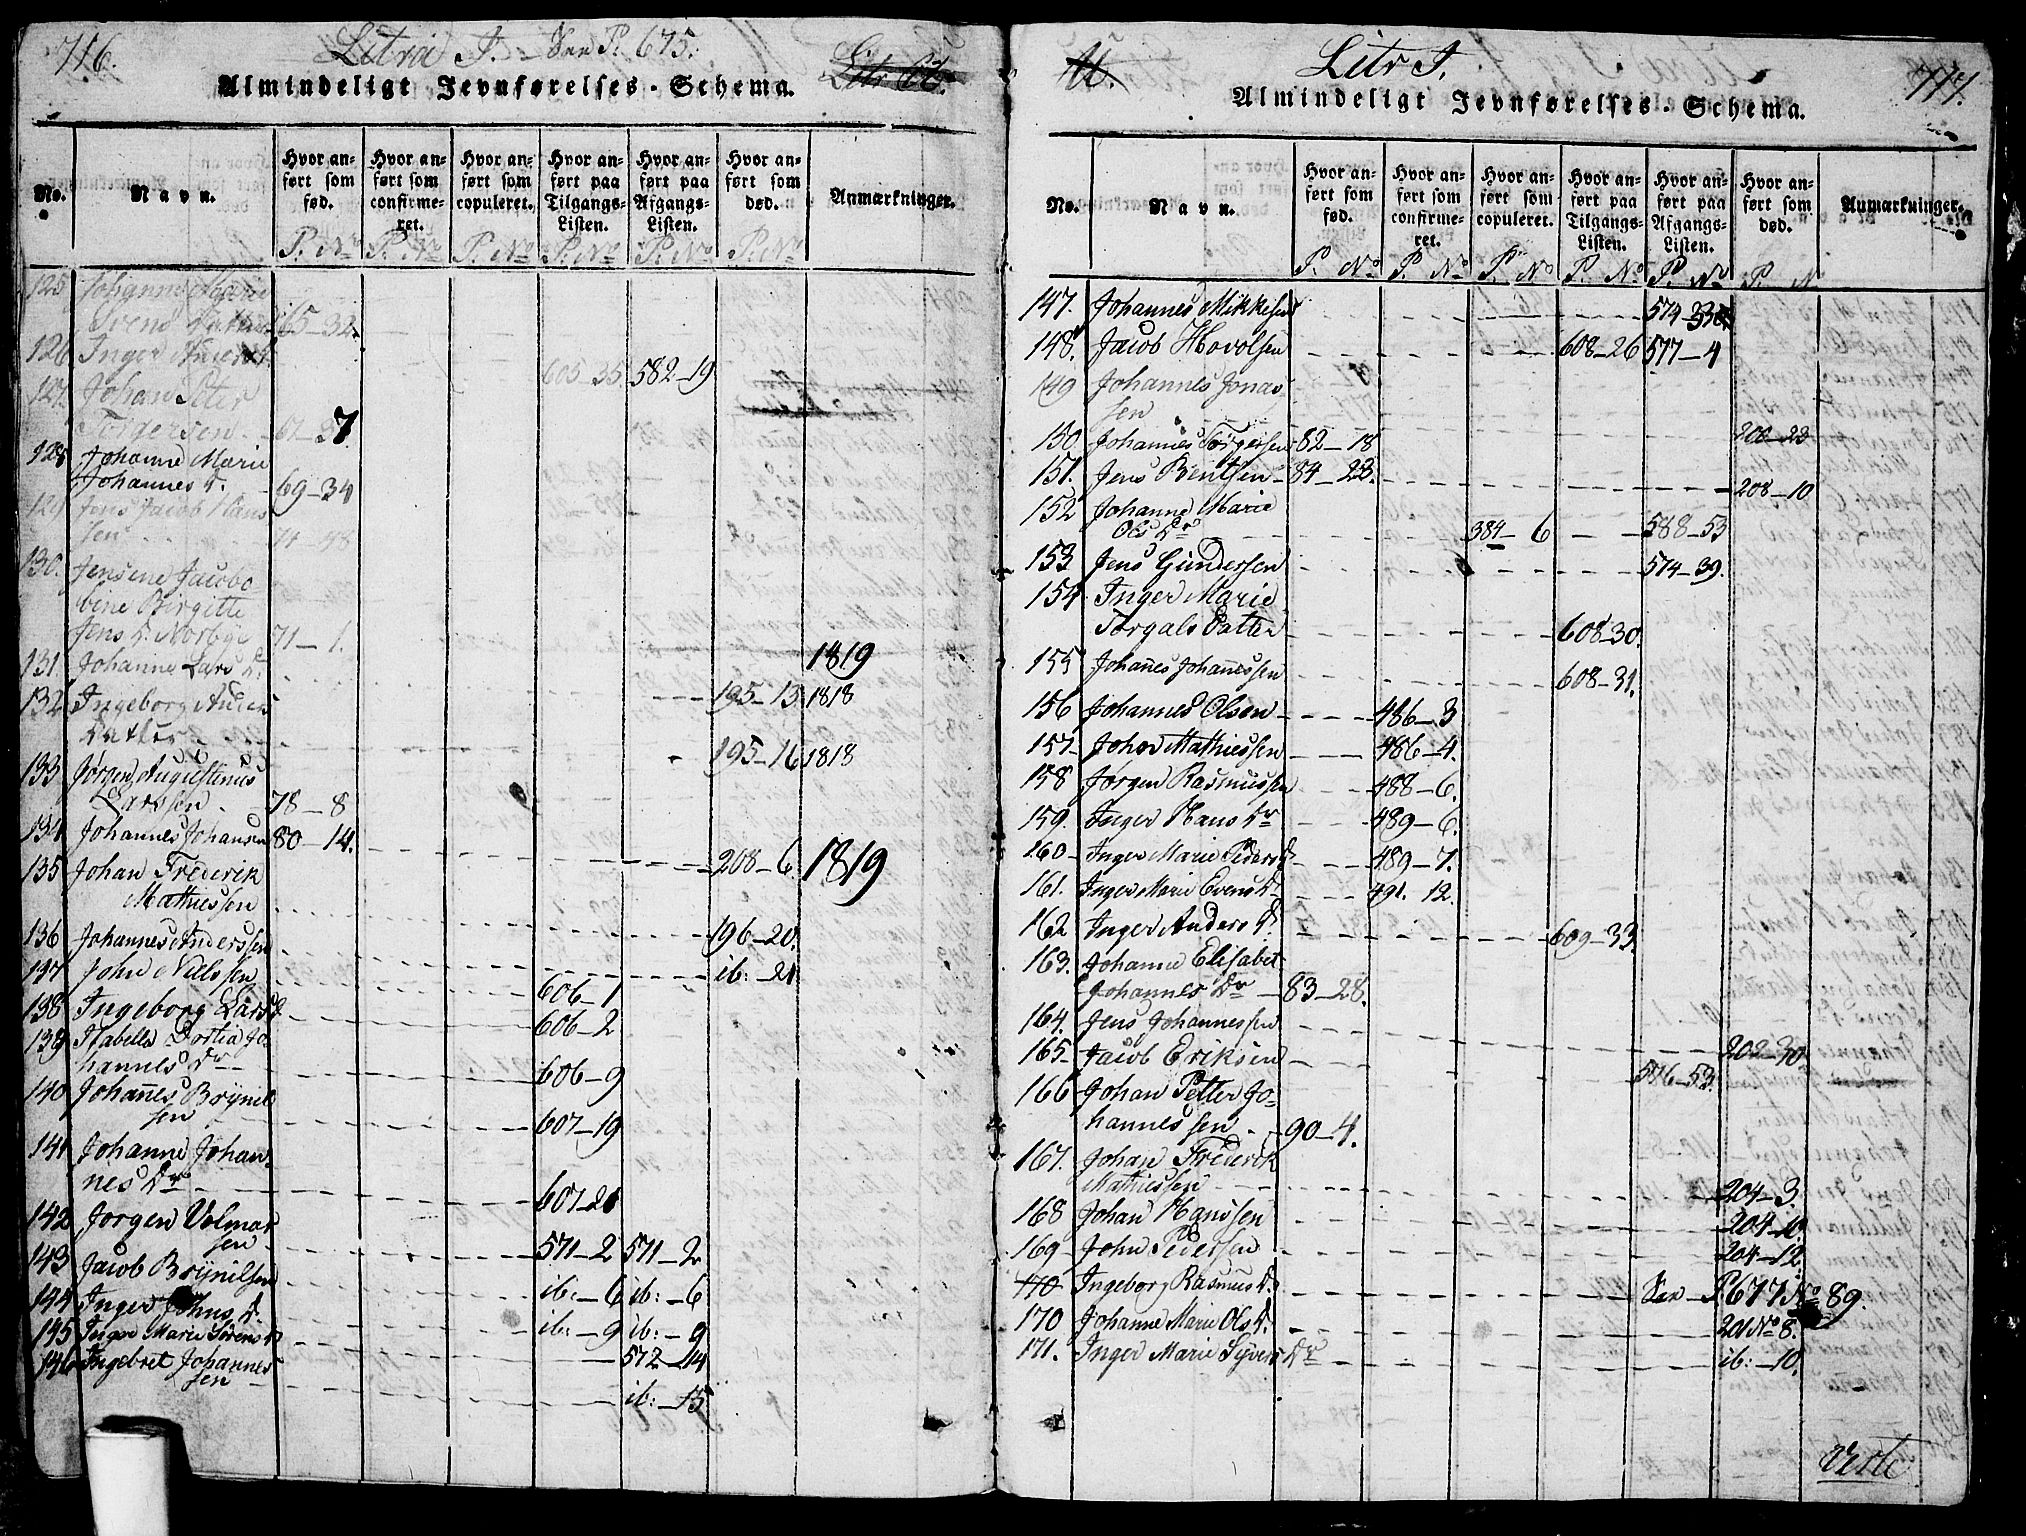 716. Litra J. See P. 675. Litr Æ.
Almindeligt Jevnførelses-Schema.
No. Navn. Hvor anført som fød. Hvor anført som confirmeret. Hvor anført som copuleret. Hvor anført paa Tilgangs-Listen. Hvor anført paa Afgangs-Listen. Hvor anført som død. Anmærkninger.
P. No P. No P. No P. No P. No P. No
125 Johanne Marie
Svens Datter 165-32.
126 Inger
605-35 582-19
127. Johan Peter
Torgersen 61-37
128 Johanne Marie
Johannes D. 69-34
129 Jens Jacob Hans
sen 74-48
130. Jensine Jacobo
bine Birgitte
Jens D. Norbye 71-1.
131 Johanne Lars D. 1819
132 Ingeborg Anders 195-13 1818
Datter
195-16 1818
133 Jørgen Augustinus
Larssen 78-8
134 Johannes Johansen 80-14.
135 Johan Frederik 208-6 1819
Mathiessen
136 Johannes Anderssen 196-20.
137 John Nielssen ib:-21
138 Ingeborg Lars D. 606-1
139 Isabelle Dortia Jo 606-2
hannes Dr 606-9
140 Johanes Brynil
sen 607-19
141 Johanne Johan
nes Dr 607-21
142 Jørgen Volmar
sen 571-2 571-2
143 Jacob Brynilsen ib:-6 ib:-6
144 Inger Johns D. ib:-9 ib:-9
145 Inger Marie Sørens D 572-14
146 Ingebret Johannes
sen ib:-15
Æ. Litr J. 717.
Almindeligt Jevnførelses-Schema.
No. Navn. Hvor anført som fød. Hvor anført som confirmeret. Hvor anført som copuleret. Hvor anført paa Tilgangs-Listen. Hvor anført paa Afgangs-Listen. Hvor anført som død. Anmærkninger.
P. No P. No P. No P. No P. No P. N
147. Johannes Mikkelsen 574-33
148. Jacob Hovolsen 608-26 577-4
149 Johannes Jonas
sen
150. Johannes Torgersen 82-18 200-23
151. Jens Bentsen 84-23. 208-10
152 Johanne Marie
Ols Dr 384-6 588-53
153 Jens Gundersen 574-39.
154 Inger Marie
Torgals Datter 608-30.
155 Johanes Johanessen 608-31.
156 Johannes Olsen 486-3
157 Johan Mathiessen 486-4.
158 Jørgen Rasmussen 488-6.
159. Inger Hans Dr 489-6.
160 Inger Marie Peders D 489-7.
161. Inger Marie Evens D. 491. 12.
162 Inger Anders D. 609-33.
163. Johanne Elisabet
Johannes Dr 83-28.
164. Jens Johannessen 202-30
165 Jacob Eriksen 576-53
166 Johan Petter Jo=
hannessen 90-4.
167. Johan Frederik
Mathiessen 204-3.
168 Johan Hanssen 204-
169 John Pedersen 204-12
170 Ingeborg Rasmus D. See P. 677 No 89.
170 Johanne Marie Ols D. 201 No 8.
171. Inger Marie Syvers Dr ib:-10.
Verte